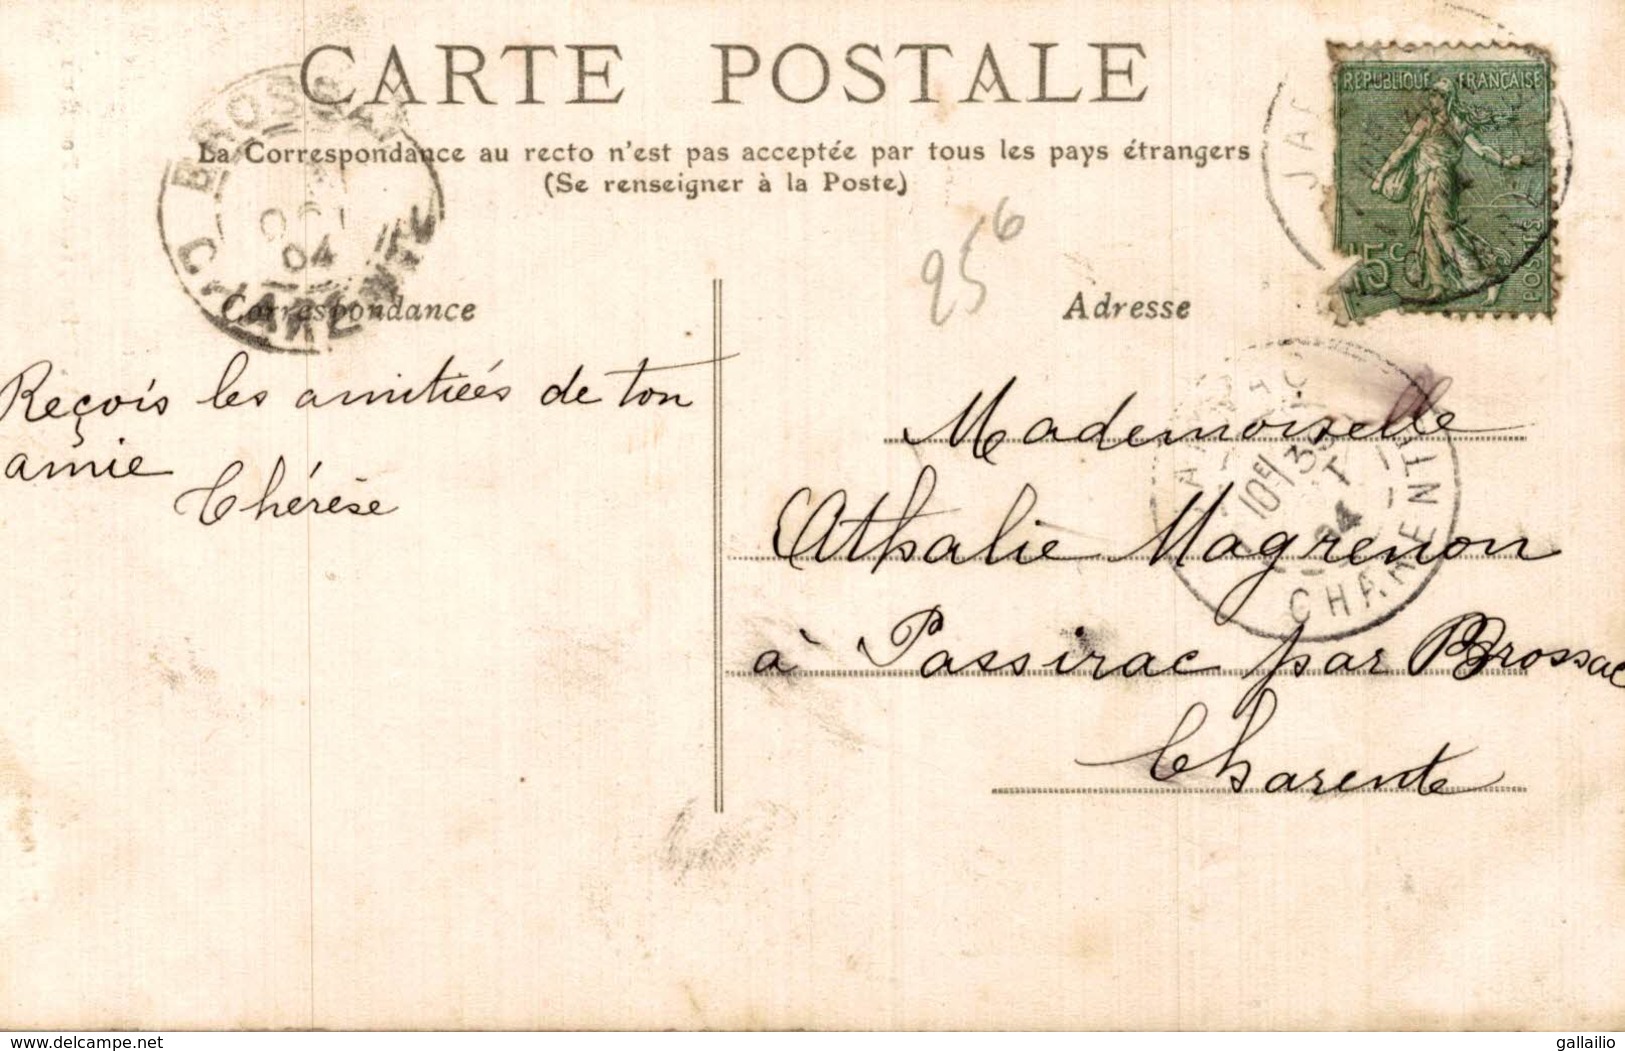 CARTE POSTALE
La Correspondance au recto n'est pas acceptée par tous les pays étrangers
(Se renseigner à la Poste)
BROSSAC
OCT
04
CHARENTE
REPUBLIQUE FRANÇAISE
15c
POSTES
25 6
Correspondance
Adresse
Reçois les amitiées de ton
amie
Thérèse
JARNAC
10E/35
04
CHARENTE
Mademoiselle
Athalie Magrenon
à Passirac par Brossac
Charente
delcampe.net
gallailio